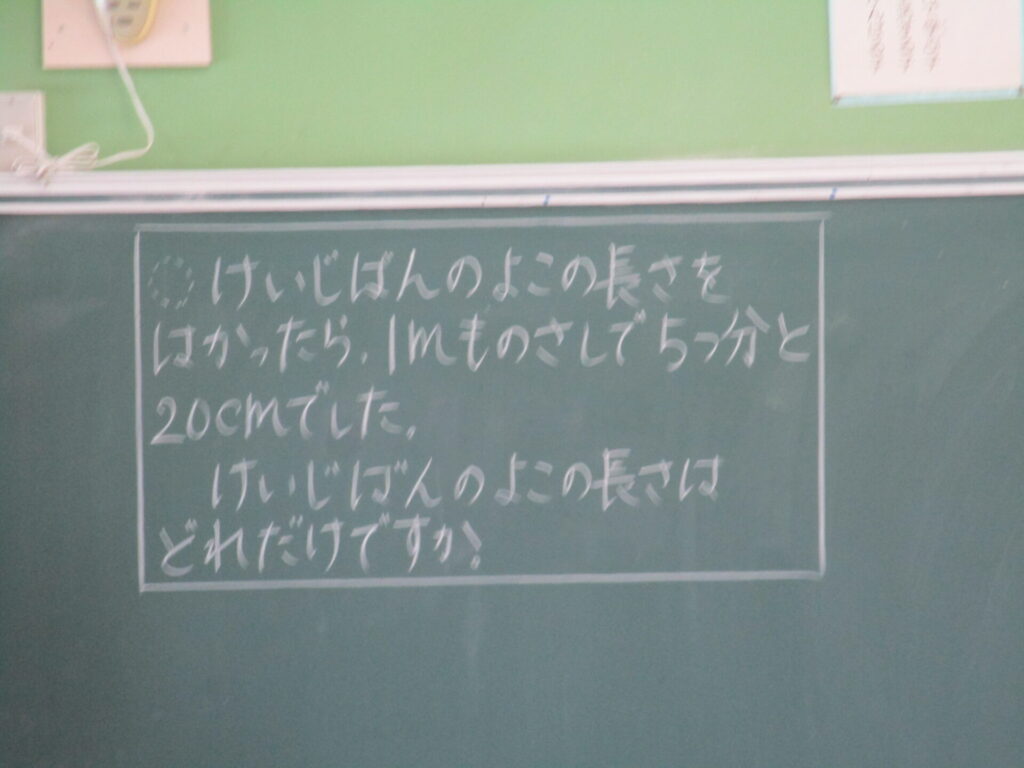 ◌けいじばんのよこの長さを
はかったら、1mものさしで5つ分と
20cmでした。
けいじばんのよこの長さは
どれだけですか?